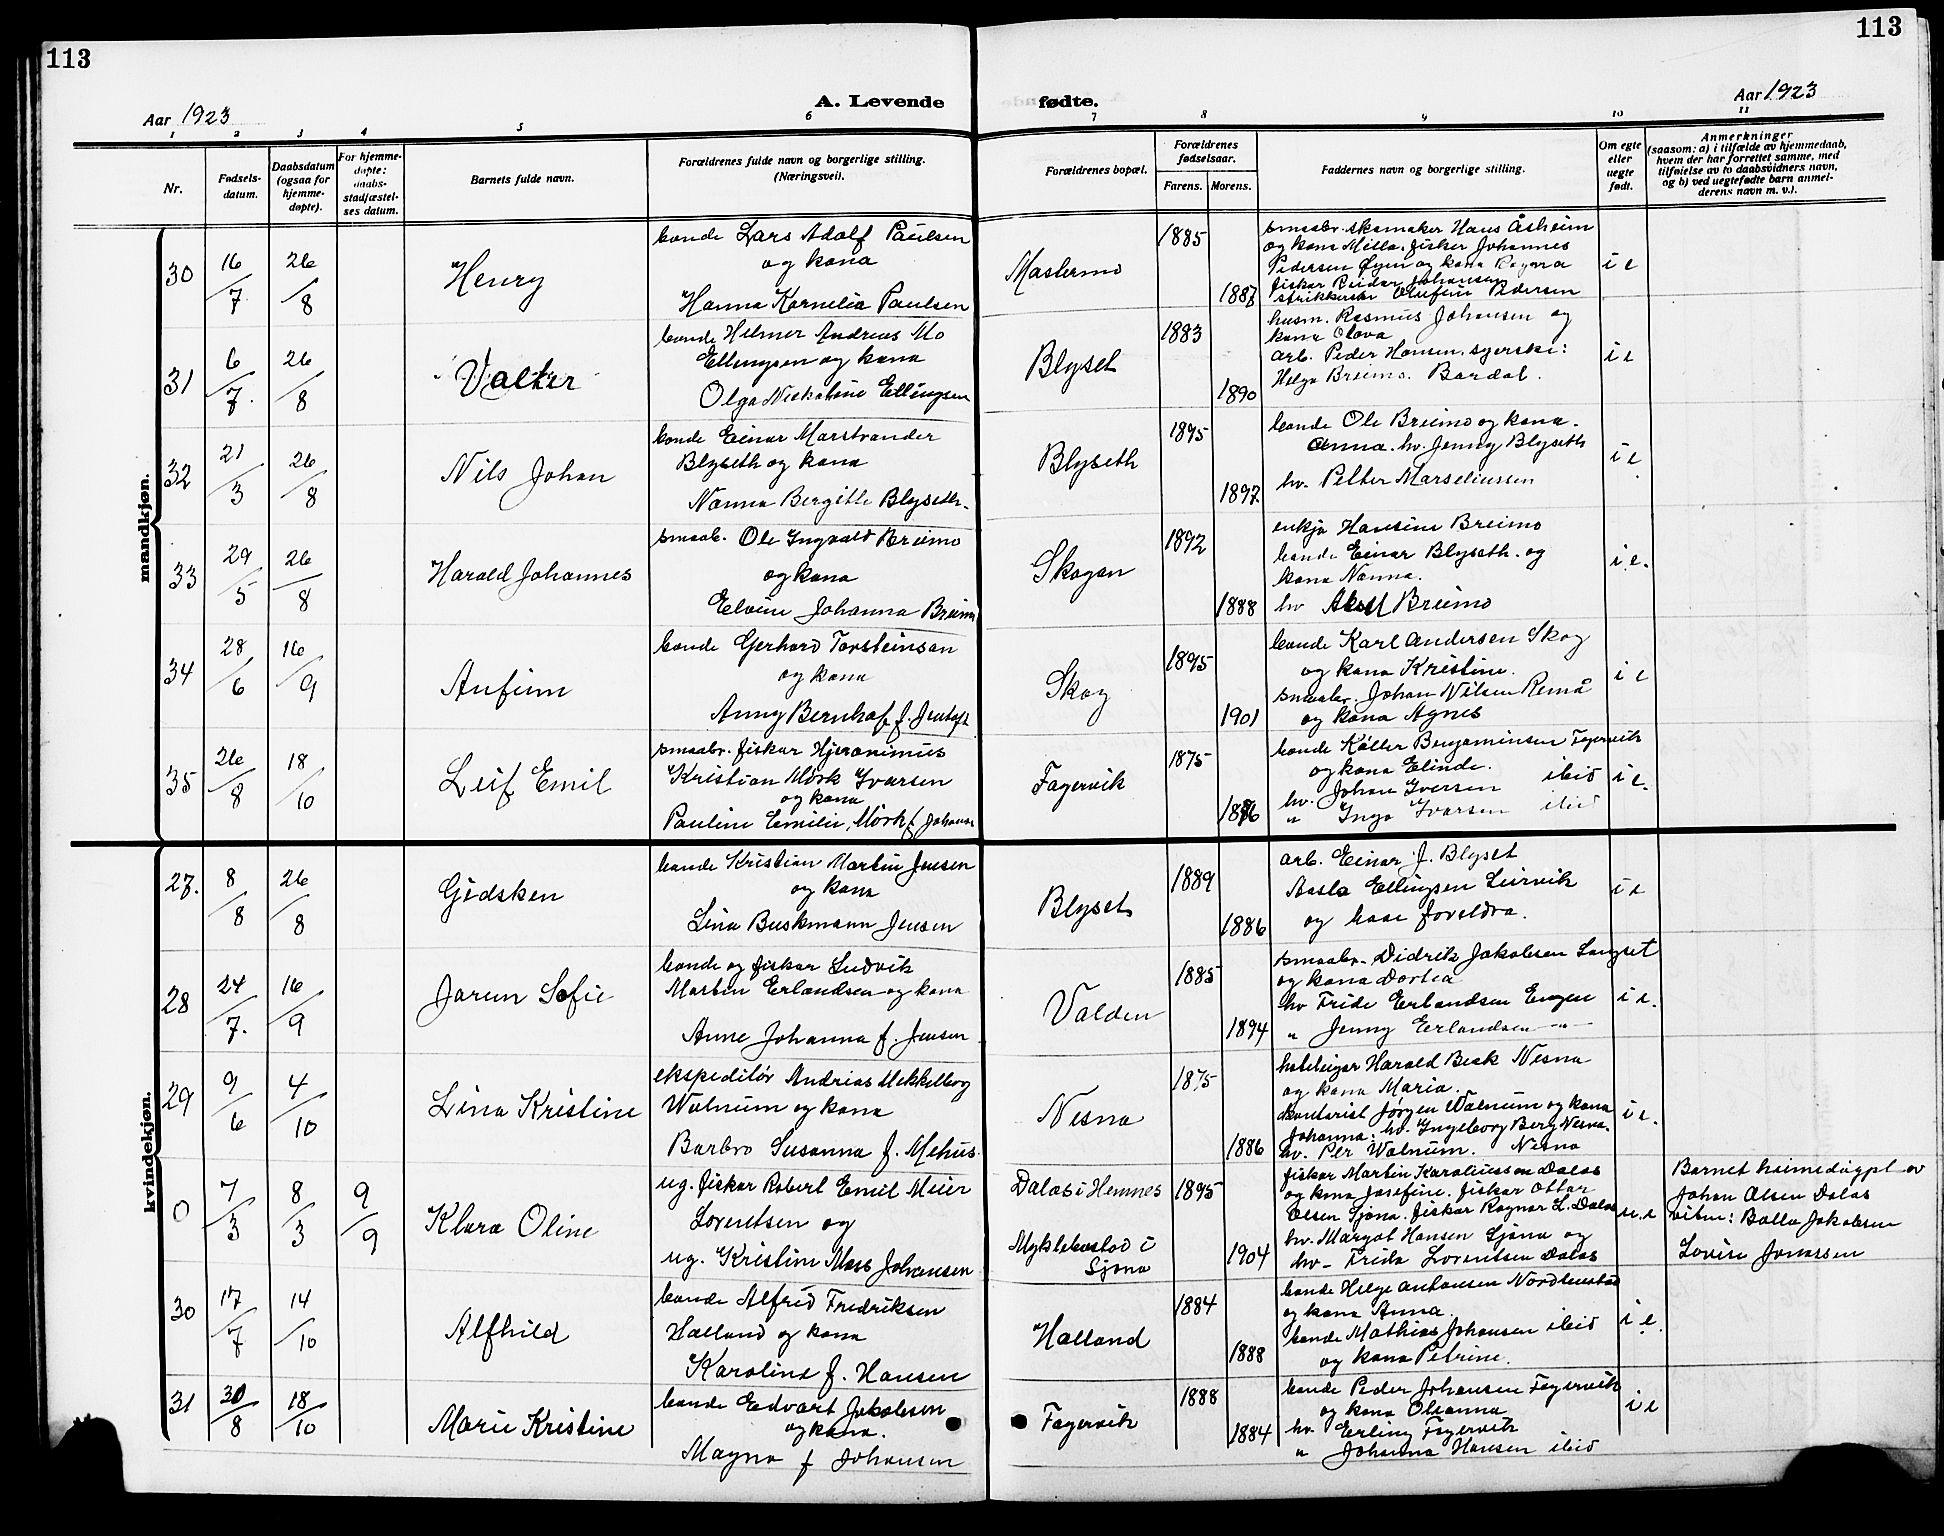 113
113
Aar 1923
A. Levende fødte.
Aar 1923
1 2 3 4 5 6 7 8 9 10 11
Nr.
Fødsels-
datum.
Daabsdatum
(ogsaa for
hjemme-
døpte).
For hjemme-
døpte:
daabs-
stadfæstel-
ses datum.
Barnets fulde navn.
Forældrenes fulde navn og borgerlige stilling.
(Næringsvei).
Forældrenes bopæl.
Forældrenes
fødselsaar.
Farens. Morens.
Faddernes navn og borgerlige stilling.
Om egte
eller
uegte
født.
Anmerkninger
(saasom: a) i tilfælde av hjemmedaab,
hvem der har forrettet samme, med
tilføielse av to daabsvidners navn,
og b) ved uegtefødte barn anmel-
derens navn m. v.).
mandkjøn.
30 16/7 26/8 Henry
bonde Lars Adolf Paulsen
og kona
Hanna Kornelia Paulsen
Mastermo 1885 1887
smaabr. skomaker Hans Åsheim
og kona Milla. fisker Johannes
Pedersen Øyen og kona Ragna
fisker Reidar Johansen
strikkerske Olufine Pedersen
i e
31 6/7. 26/8 Valter
bonde Hilmer Andreas Mo
Ellingsen og kona
Olga Nickoline Ellingsen
Blyset 1883 1890
husm. Rasmus Johansen og
kona Olava
arb. Peder Hansen. syerske:
Helga Breimo. Bardal.
i e
32 21/3 26/8 Nils Johan
bonde Einar Marstrander
Blyseth og kona
Nanna Bergitte Blyseth.
Blyseth 1895 1897
bonde Ole Breimo og kona.
Anna. hv. Jenny Blyseth
hv. Petter Marseliussen
i e
33 29/5 26/8 Harald Johannes
smaab. Ole Ingvald Breimo
og kona
Elvine Johanna Breimo
Skogan 1892 1888
enkja Hansine Breimo
bonde Einar Blyseth. og
kona Nanna.
hv Aksel Breimo
i e.
34 28/6 16/9 Anfinn
bonde Gerhard Torsteinsen
og kona
Anny Bernhof f. Jentoft
Skog 1895 1901
bonde Karl Andersen Skog
og kona Kristine.
smaabr. Johan Nilsen Remå
og kona Agnes
i e
35 26/8 18/10 Leif Emil
smaabr. fiskar Hjeronimus
Kristian Mørk Ivarsen
og kona
Pauline Emilie Mørk f. Johans
Fagervik 1875 1876
bonde Køller Benjaminsen Fagervik
og kona Elinde.
hv. Johan Iversen ibid
" Inga Ivarsen ibid
i e.
kvindekjøn.
27. 8/8 26/8 Gidsken
bonde Kristian Martin Jensen
og kona
Lina Buskmann Jensen
Blyset 1889 1886
arb. Einar J. Blyset
Aasta Ellingsen Leirvik
og baae foreldra.
i e
28 24/7. 16/9 Jorun Sofie
bonde og fiskar Ludvik
Martin Erlandsen og kona
Anne Johanna f. Jensen
Valden 1885 1894
smaabr. Didrik Jakobsen Langset
og kona Dortea
hv Fride Erlandsen Engen
" Jenny Erlandsen — " —
i e.
29 9/6 4/10 Lina Kristine
ekspeditør Andreas Mekkelborg
Walnum og kona
Barbro Susanna f. Mehus.
Nesna 1875 1886
hoteleigar Harald Beck Nesna
og kona Maria.
kontorist Jørgen Walnum og kona
Johanna: hv. Ingeborg Berg Nesna.
hv. Per Walnum. Nesna
i e.
0 7/3 8/3 9/9 Klara Oline
ug. fiskar Robert Emil Meier
Lorentsen og
ug. Kristine Mass Johansen
Dalos i Hemnes
Myklebostad i
Sjona
1895 1904
fiskar Martin Karoliussen Dalos
og kona Josefine. fiskar Ottar
Olsen Sjona. fiskar Ragnar L. Dalos
hv. Margot Hansen Sjona og
hv. Frida Lorentsen Dalos
u. e
Barnet heimedøypt av
Johan Olsen Dalos
vitne: Balla Jakobsen
Lovise Jonassen
30 17/7 14/10 Alfhild
bonde Alfred Fredriksen
Halland og kona
Karoline f. Hansen
Halland 1884 1888
bonde Helge Antonsen Nordbustad
og kona Anna.
bonde Mathias Johansen ibid
og kona Petrine.
i e.
31 30/8 18/10 Marie Kristine
bonde Edvart Jakobsen
og kona.
Magna f Johansen
Fagervik 1888 1884
bonde Peder Johansen Fagervik
og kona Oleanna
hv. Erling Fagervik
" Johanna Hansen ibid
i e